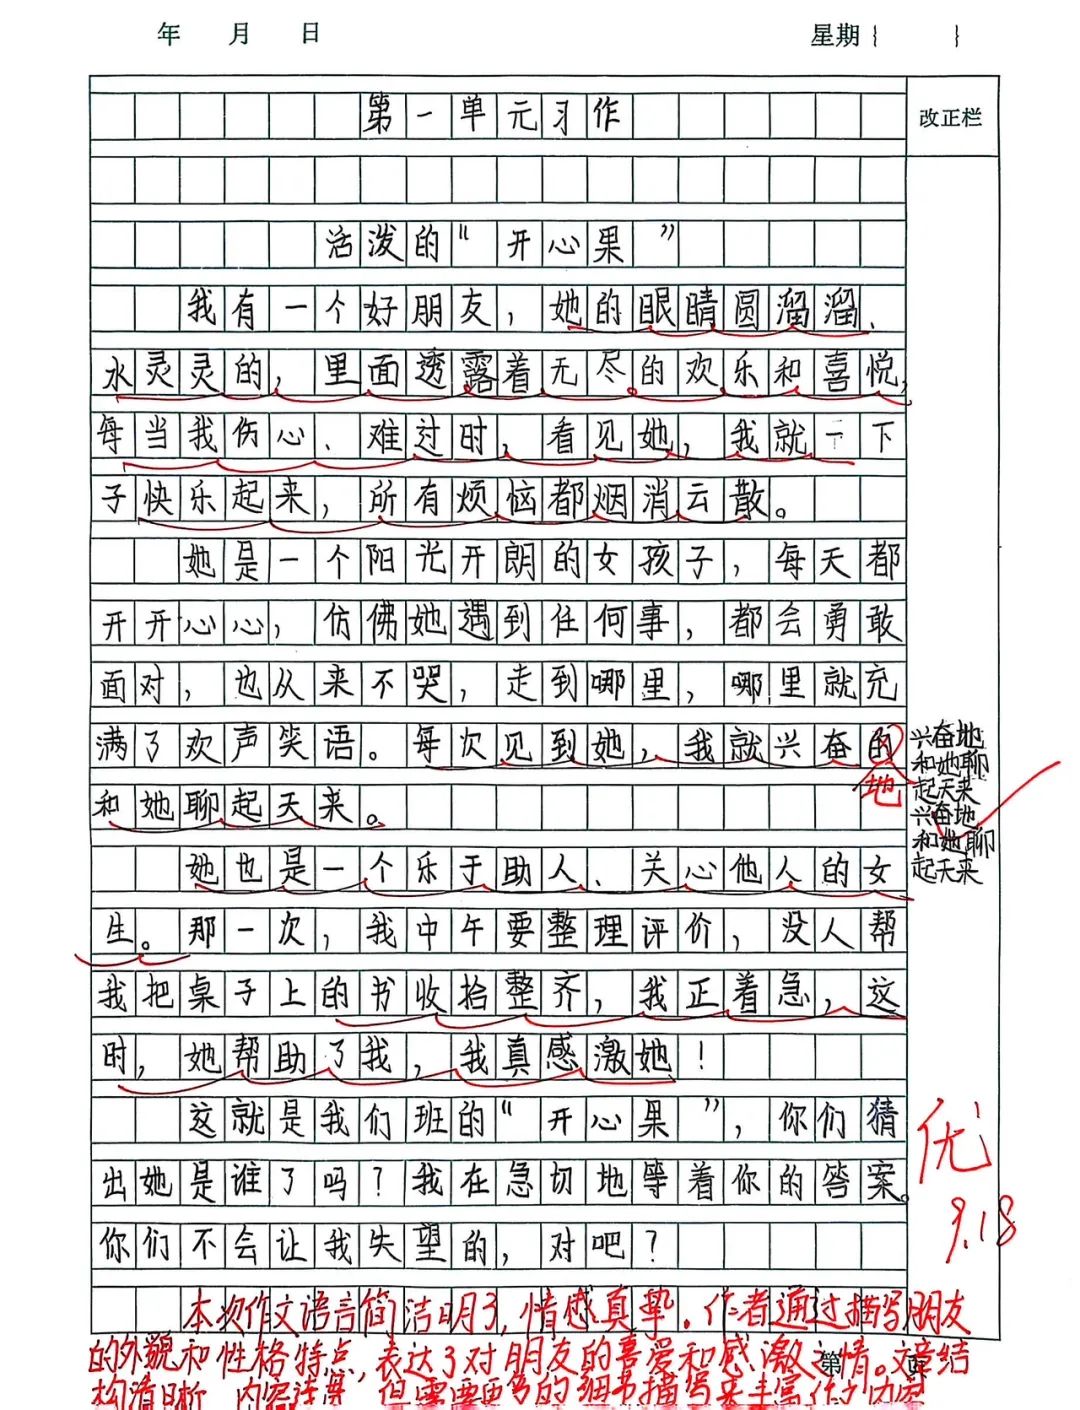 年 月 日 星期{ }
改正栏
第一单元习作
活泼的“开心果”
我有一个好朋友，她的眼睛圆溜溜、
水灵灵的，里面透露着无尽的欢乐和喜悦，
每当我伤心、难过时，看见她，我就一下
子快乐起来，所有烦恼都烟消云散。
她是一个阳光开朗的女孩子，每天都
开开心心，仿佛她遇到任何事，都会勇敢
面对，也从来不哭，走到哪里，哪里就充
满了欢声笑语。每次见到她，我就兴奋的
地
和她聊起天来。
兴奋地
和她聊
起天来
兴奋地
和她聊
起天来
她也是一个乐于助人、关心他人的女
生。那一次，我中午要整理评价，没人帮
我把桌子上的书收拾整齐，我正着急，这
时，她帮助了我，我真感激她！
这就是我们班的“开心果”，你们猜
出她是谁了吗？我在急切地等着你的答案。
你们不会让我失望的，对吧？
优
9.18
本次作文语言简洁明了，情感真挚。作者通过描写朋友
的外貌和性格特点，表达了对朋友的喜爱和感激之情。文章结
第 页
构清晰，内容连贯，但需要更多的细节描写来丰富